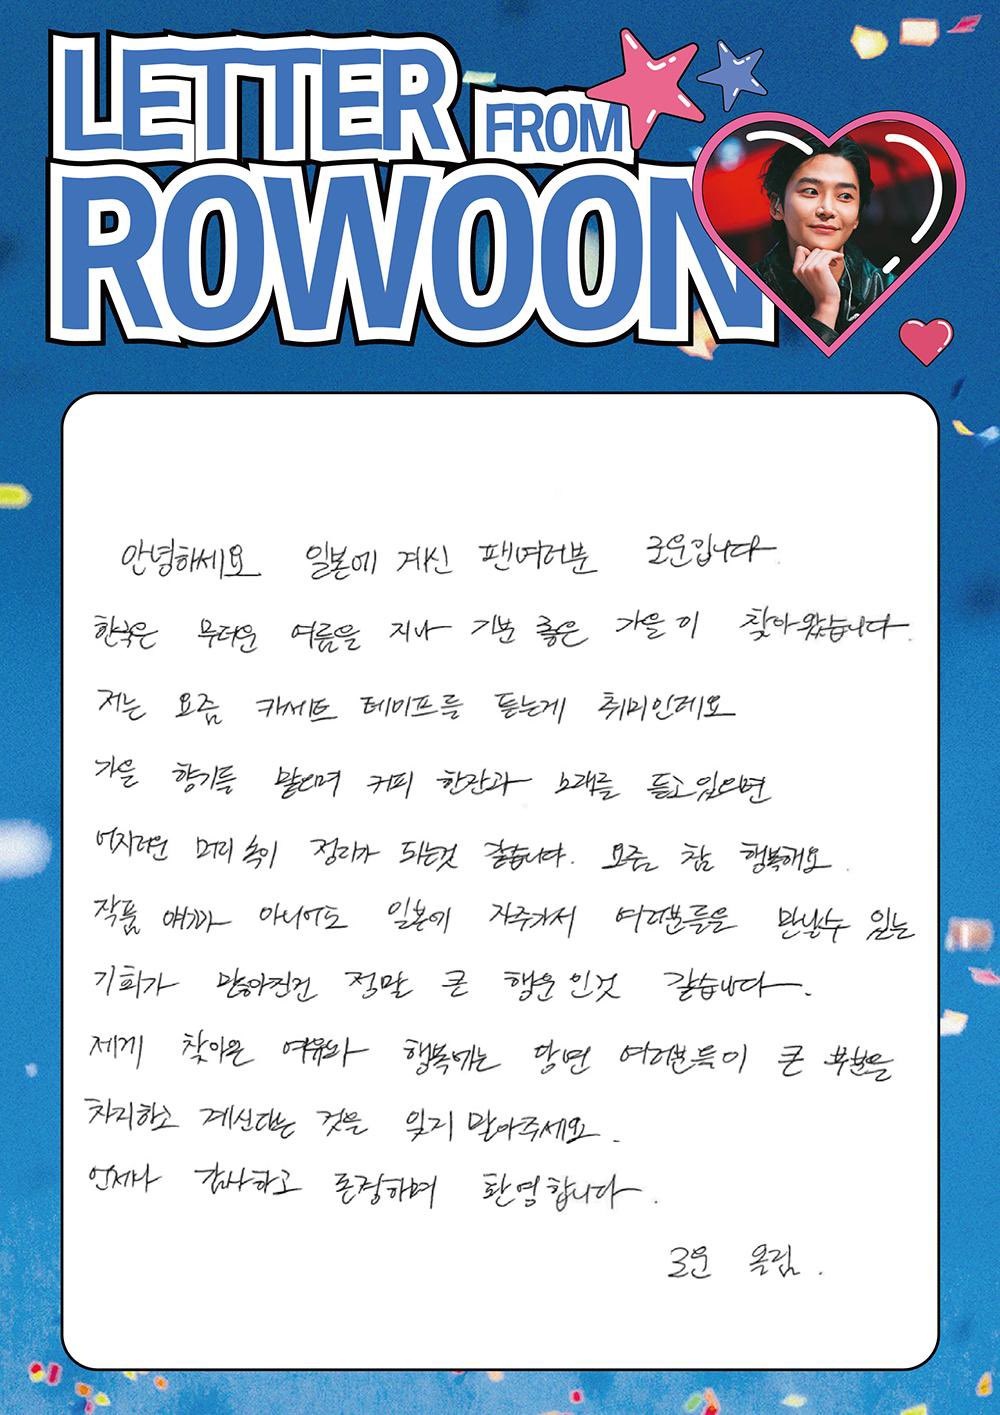 LETTER FROM
ROWOON
안녕하세요 일본에 계신 팬여러분 로운입니다.
한국은 무더운 여름을 지나 기분 좋은 가을이 찾아왔습니다.
저는 요즘 카세트 테이프를 듣는게 취미인데요
가을 향기를 맡으며 커피 한잔과 노래를 듣고있으면
어지러운 머리 속이 정리가 되는것 같습니다. 요즘 참 행복해요.
작품 얘기가 아니어도 일본에 자주가서 여러분들을 만날수 있는
기회가 많아진건 정말 큰 행운인것 같습니다.
제게 찾아온 여유와 행복에는 당연 여러분들이 큰 부분을
차지하고 계신다는 것을 잊지 말아주세요.
언제나 감사하고 존경하며 환영합니다.
로운 올림.